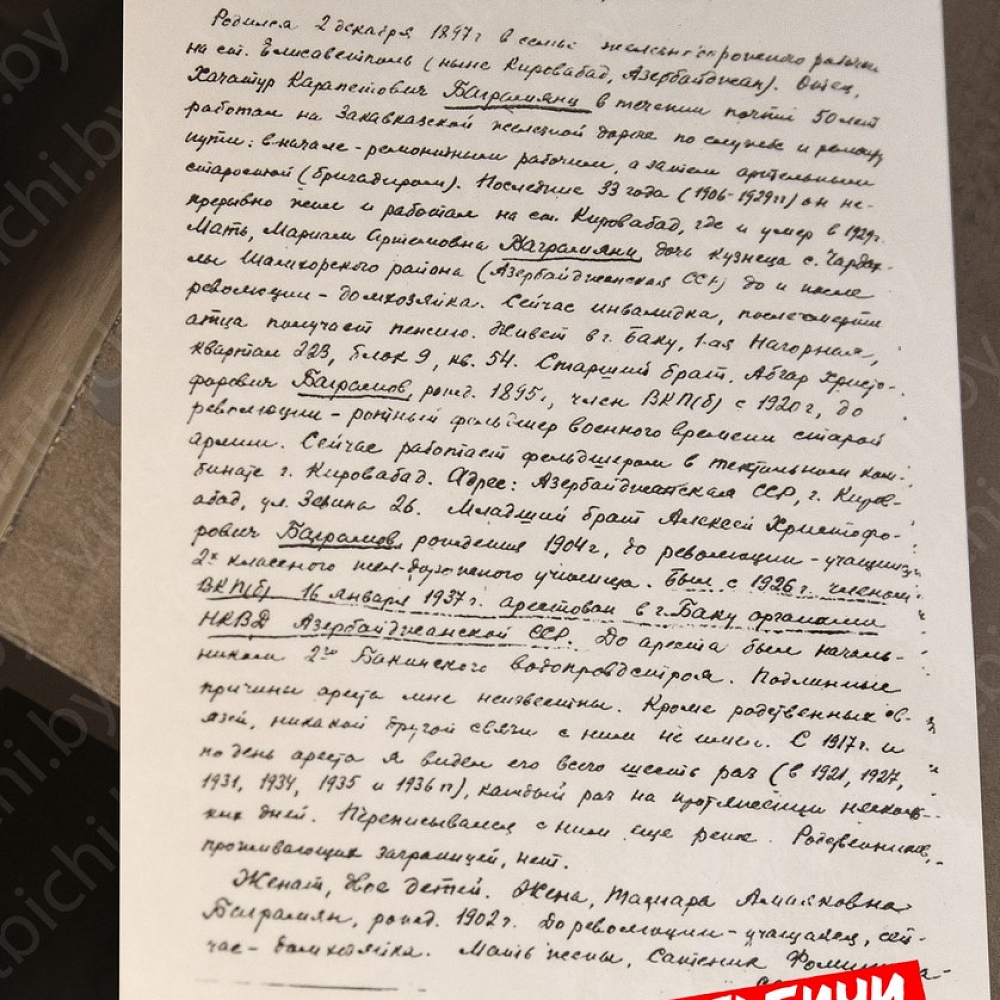 Родился 2 декабря 1897 г в семье железнодорожного рабочего
на ст. Елисаветполь (ныне Кировабад, Азербайджан). Отец,
Хачатур Карапетович Баграмянц в течении почти 50 лет
работал на Закавказской железной дороге по службе и ремонту
пути: вначале - ремонтным рабочим, а затем артельным
старостой (бригадиром). Последние 33 года (1906-1929 гг) он не-
прерывно жил и работал на ст. Кировабад, где и умер в 1929г.
Мать, Мариам Артемовна Баграмянц, дочь кузнеца с. Чардах-
лы Шамхорского района (Азербайджанская ССР) до и после
революции - домхозяйка. Сейчас инвалидка, после смерти
отца получает пенсию. Живет в г. Баку, 1-ая Нагорная,
квартал 223, блок 9, кв. 54. Старший брат, Абгар Христо-
форович Баграмов, рожд. 1895 г, член ВКП(б) с 1920 г, до
революции - ротный фельдшер военного времени старой
армии. Сейчас работает фельдшером в текстильном ком-
бинате г. Кировабад. Адрес: Азербайджанская ССР, г. Киров-
абад, ул. Зевина 26. Младший брат Алексей Христофо-
рович Баграмов, рождения 1904 г, до революции - учащийся
2х классного жел-дорожного училища. Был с 1926 г. членом
ВКП(б) 16 января 1937 г. арестован в г. Баку органами
НКВД Азербайджанской ССР. До ареста был началь-
ником 2го Бакинского водопроводстроя. Подлинные
причины ареста мне неизвестны. Кроме родственных св-
язей, никакой другой связи с ним не имел. С 1917 г. и
по день ареста я видел его всего шесть раз (в 1921, 1927,
1931, 1934, 1935 и 1936 гг), каждый раз на протяжении несколь-
ких дней. Переписывался с ним еще реже. Родственников,
проживающих заграницей, нет.
Женат, двое детей. Жена, Тамара Амаяковна
Баграмян, рожд. 1902 г. До революции - учащаяся, сей-
час - домхозяйка. Мать жены, Сатеник